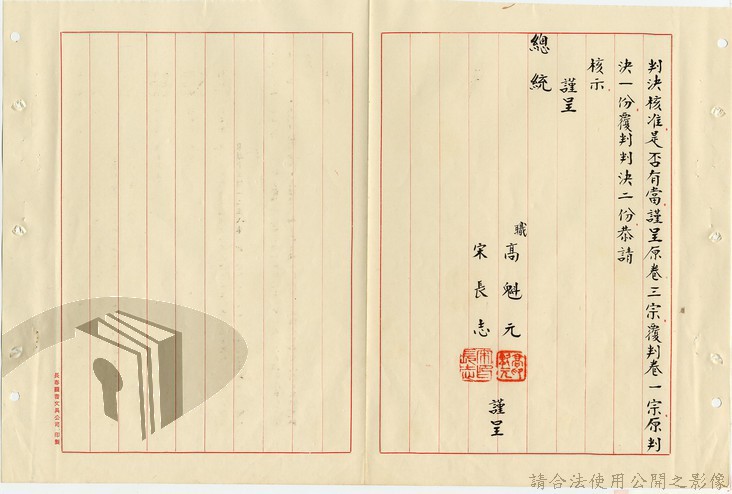 判決核准是否有當謹呈原卷三宗覆判卷一宗原判
決一份覆判判決二份恭請
核示
謹呈
總統
職
高魁元
宋長志
謹呈
請合法使用公開之影像